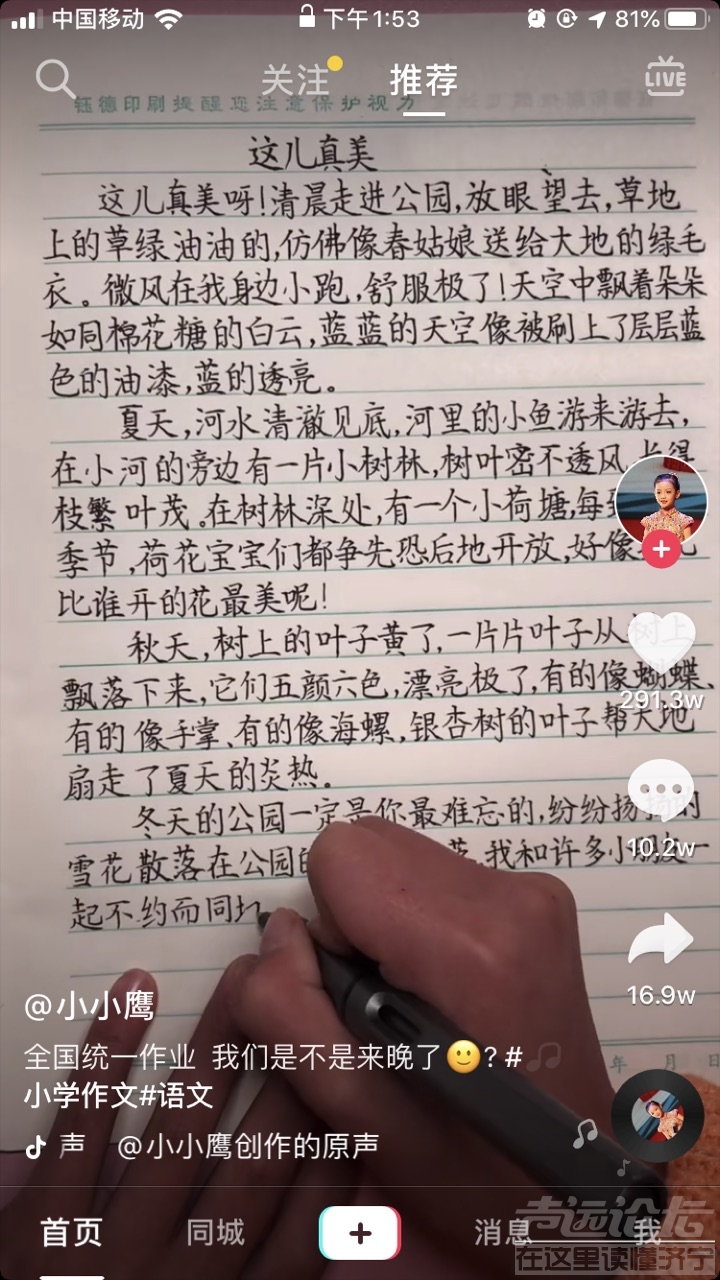 中国移动 下午1:53 81%
关注 推荐 LIVE
钰德印刷提醒您注意保护视力
这儿真美
这儿真美呀!清晨走进公园,放眼望去,草地
上的草绿油油的,仿佛像春姑娘送给大地的绿毛
衣。微风在我身边小跑,舒服极了!天空中飘着朵朵
如同棉花糖的白云,蓝蓝的天空像被刷上了层层蓝
色的油漆,蓝的透亮。
夏天,河水清澈见底,河里的小鱼游来游去,
在小河的旁边有一片小树林,树叶密不透风,长得
枝繁叶茂。在树林深处,有一个小荷塘,每到
季节,荷花宝宝们都争先恐后地开放,好像
比谁开的花最美呢!
秋天,树上的叶子黄了,一片片叶子从树上
飘落下来,它们五颜六色,漂亮极了,有的像蝴蝶、
有的像手掌、有的像海螺,银杏树的叶子帮大地
扇走了夏天的炎热。
冬天的公园一定是你最难忘的,纷纷扬扬的
雪花散落在公园的 我和许多小朋友一
起不约而同
291.3w
10.2w
16.9w
@小小鹰
全国统一作业 我们是不是来晚了🙂?#
小学作文#语文
年 月 日
声 @小小鹰创作的原声
首页 同城 + 消息 我
声远论坛
在这里读懂济宁